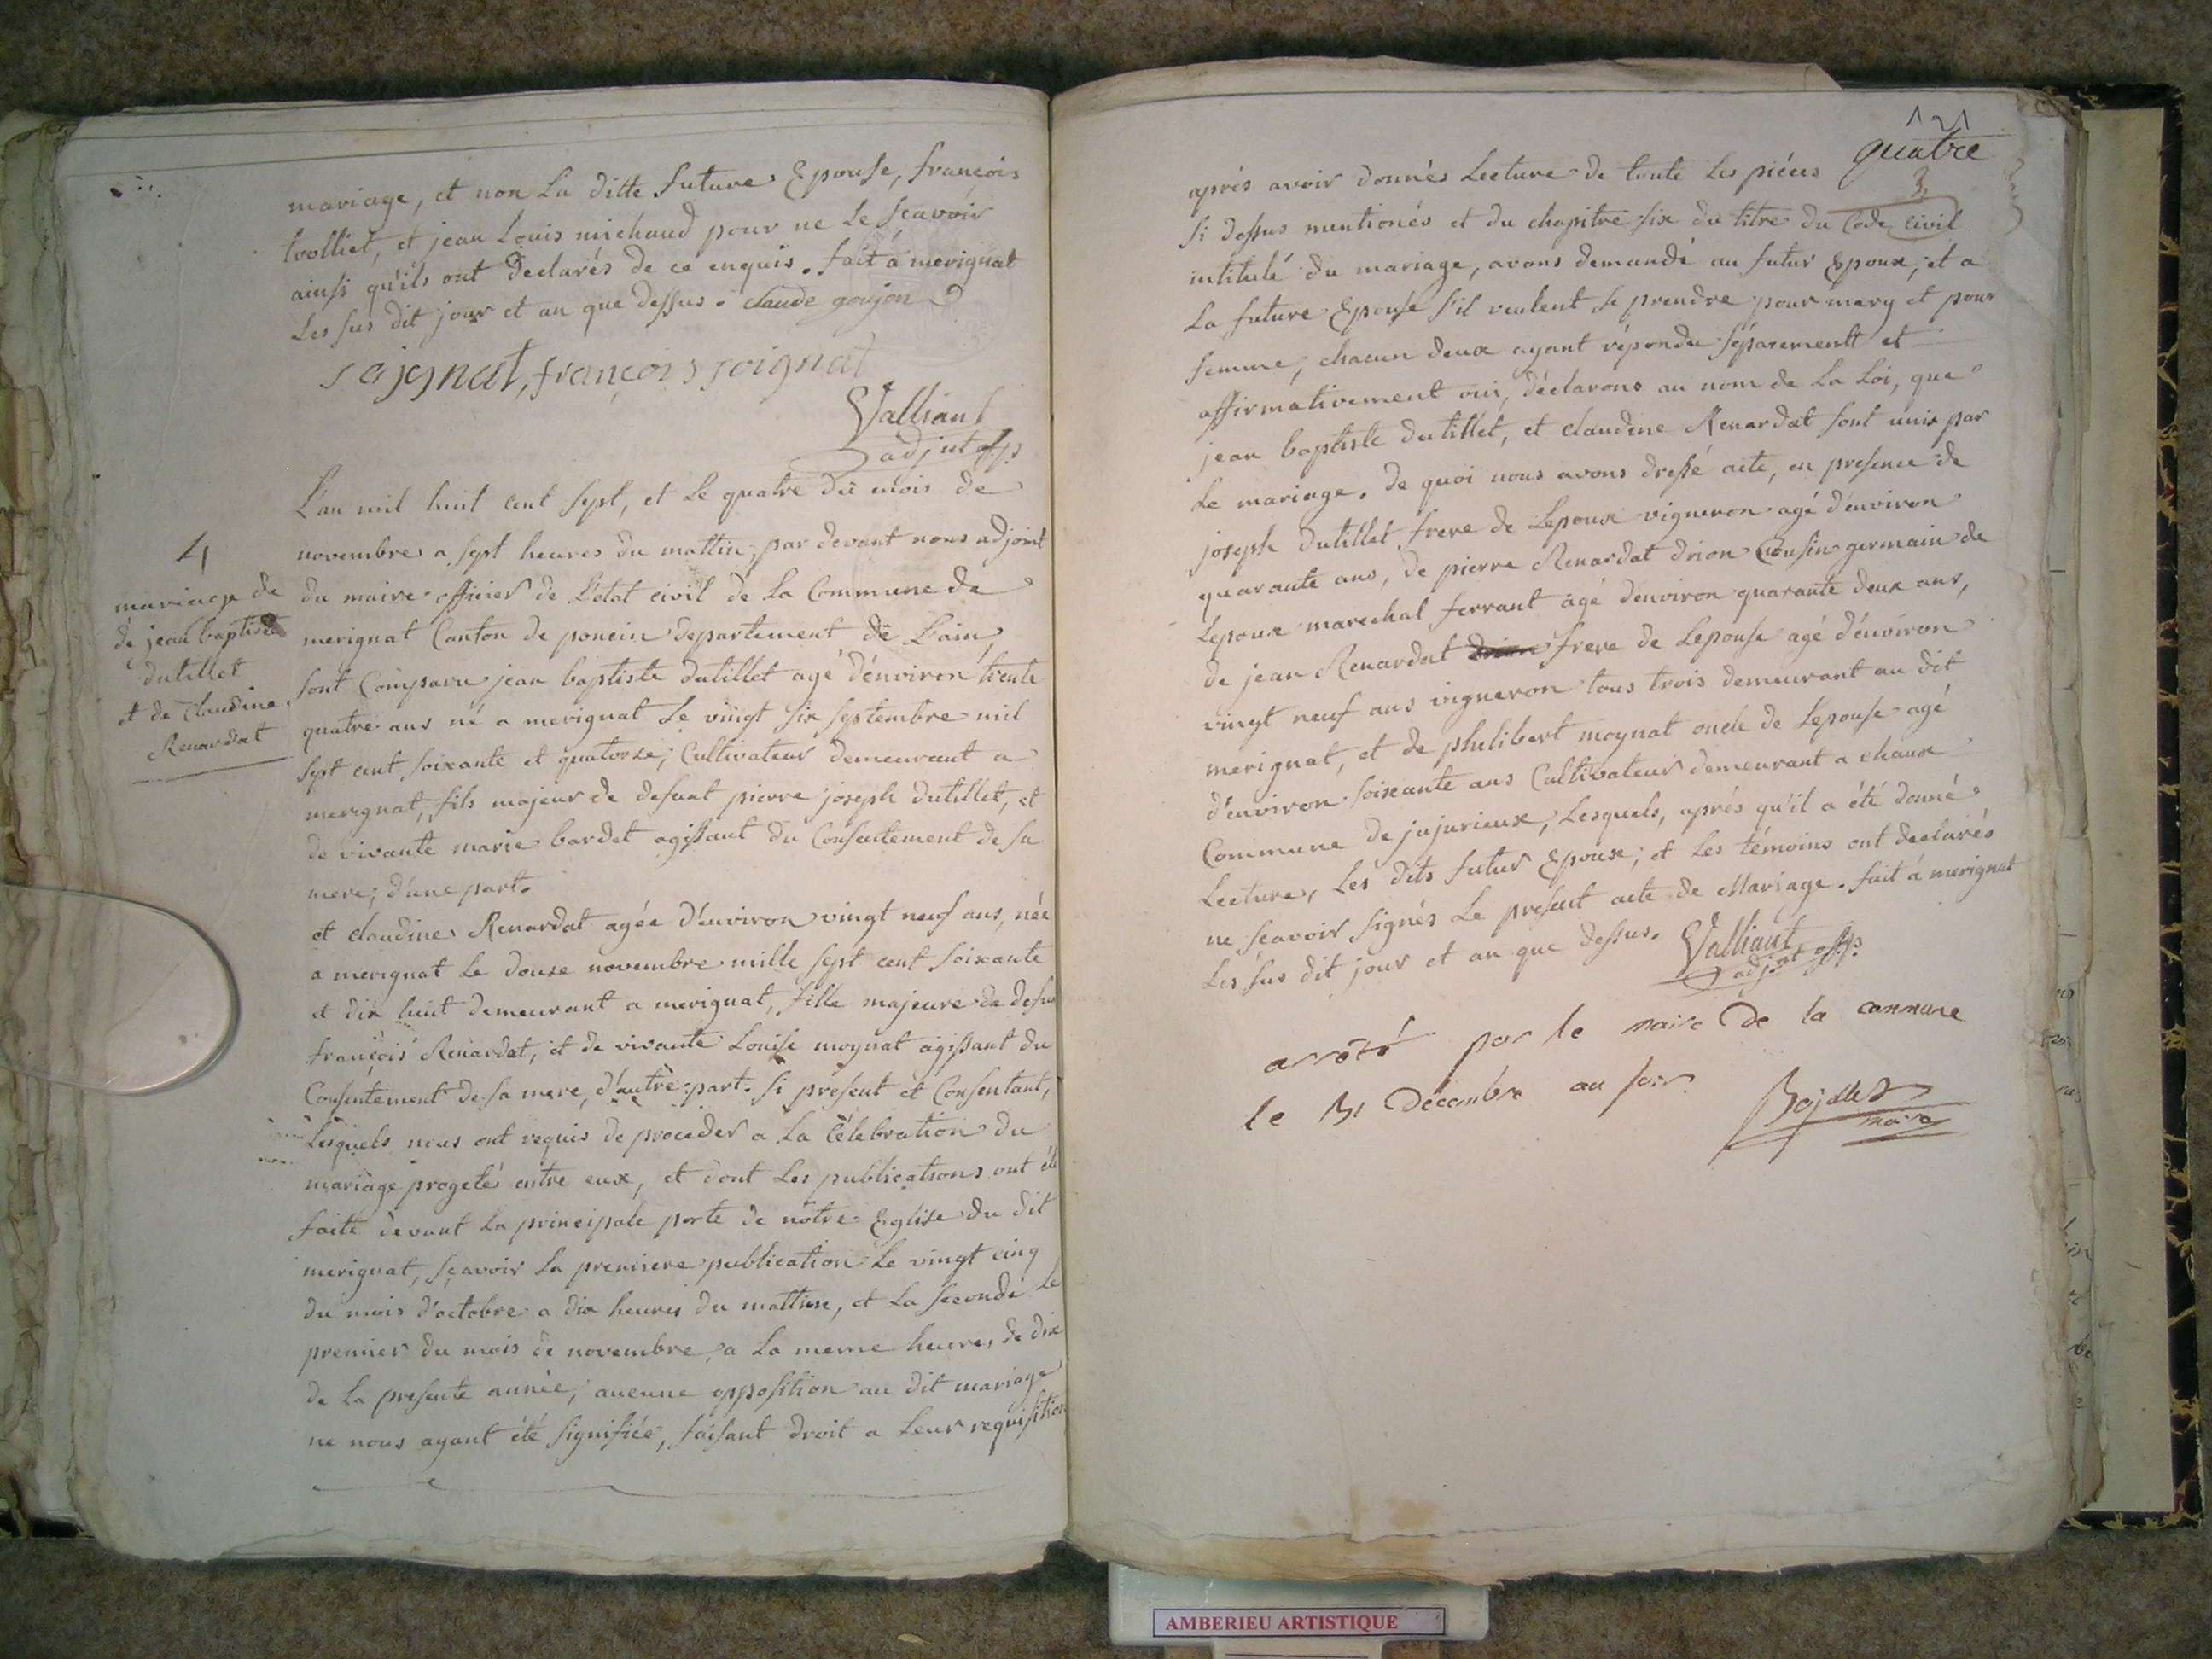 mariage, et non La ditte future Epouse, françois
trolliet, et jean Louis michaud pour ne le sçavoir
ainsi qu'ils ont declarés de ce enquis. fait a merignat
Les sus dit jour et an que dessus. claude goujon
françois soignat
Valliant
adjut
L'an mil huit cent sept, et le quatre du mois de
novembre a sept heures du mattin, par devant nous adjoint
du maire officier de L'etat civil de La Commune de
merignat Canton de poncin departement de L'ain,
sont Comparu jean baptiste dutillet agé d'environ trente
quatre ans né a merignat Le vingt six septembre mil
sept cent soixante et quatorze, Cultivateur demeurant a
merignat, fils majeur de defunt pierre joseph dutillet, et
de vivante marie bardet agissant du Consentement de sa
mere, d'une part.
4
mariage de
de jean baptiste
dutillet
et de Claudine
Renardat
et claudine Renardat agée d'environ vingt neuf ans, née
a merignat Le douze novembre mille sept cent soixante
et dix huit demeurant a merignat, fille majeure de defu
françois Renardat, et de vivante Louise moynat agissant du
Consentement de sa mere, d'autre part. si present et Consentant,
Lesquels nous ont requis de proceder a La Célebration du
mariage progetés entre eux, et dont Les publications ont été
faite devant La principale porte de nôtre Eglise du dit
merignat, sçavoir La premiere publication Le vingt cinq
du mois d'octobre a dix heures du mattin, et La seconde Le
premier du mois de novembre, a La meme heures de dix
de La presente année, aucune opposition au dit mariage
ne nous ayant été signifiée, faisant droit a Leur requisition
121
quatre
aprés avoir donnés Lecture de toute Les piéces
si dessus mentionés et du chapitre six du titre du Code civil
intitulé du mariage, avons demandé au futur Epoux, et a
La future Epouse s'il veulent se prendre pour mary et pour
femme, chacun deux ayant répondu séparementt et
affirmativement oui, déclarons au nom de La Loi, que
jean baptiste dutillet, et claudine Renardat sont unis par
Le mariage. de quoi nous avons dressé acte, en presence de
joseph dutillet frere de Lepoux vigneron agé d'environ
quarante ans, de pierre Renardat drion Cousin germain de
Lepoux marechal ferrant agé d'environ quarante deux ans,
de jean Renardat frere de Lepouse agé d'environ
vingt neuf ans vigneron tous trois demeurant au dit
merignat, et de philibert moynat oncle de Lepouse agé
d'environ soixante ans Cultivateur demeurant a chaux
Commune de jujurieux, Lesquels, aprés qu'il a été donné
Lecture, Les dits futur Epoux, et Les témoins ont declarés
ne sçavoir signés Le present acte de Mariage. fait á merignat
Les sus dit jour et an que dessus. Valliant
adjut
arrêté par le maire de la commune
le 31 decembre au soir
maire
AMBERIEU ARTISTIQUE